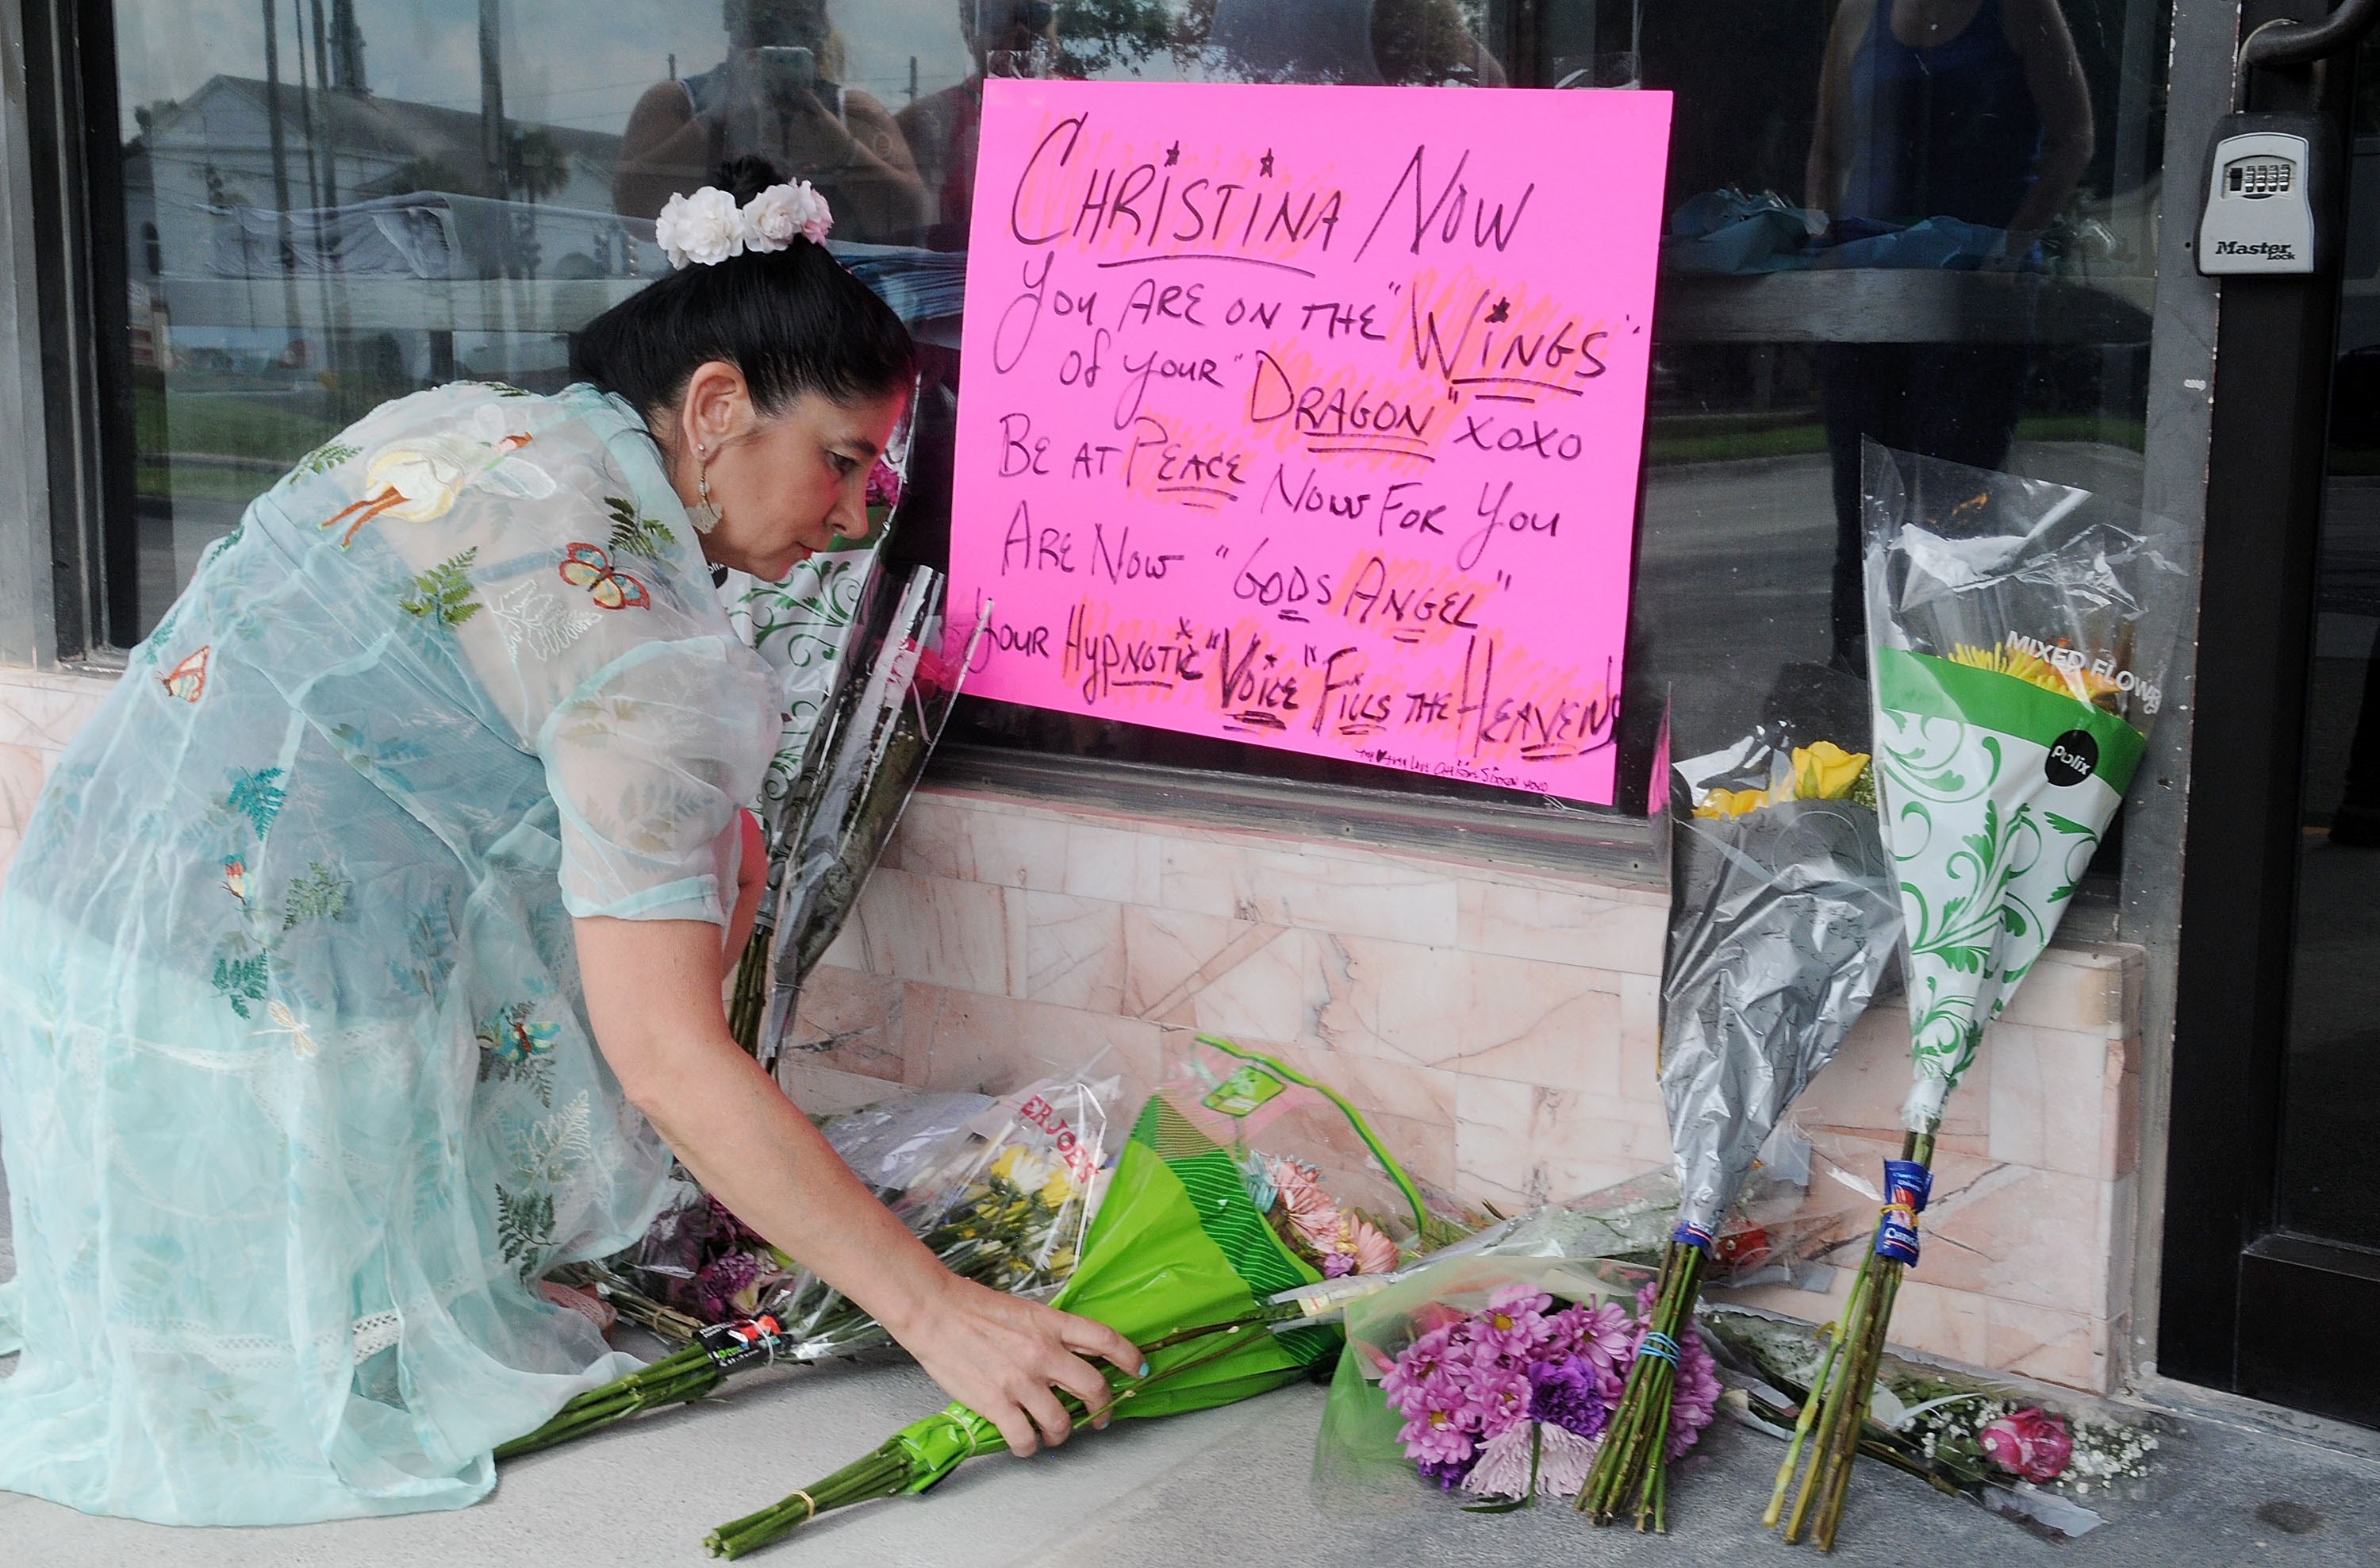 CHRISTINA NOW
YOU ARE ON THE "WINGS"
OF YOUR "DRAGON" XOXO
BE AT PEACE NOW FOR YOU
ARE NOW "GODS ANGEL"
YOUR HYPNOTIC "VOICE" FILLS THE HEAVENS
Master
Lock
MIXED FLOW
Publix
ERJOBS